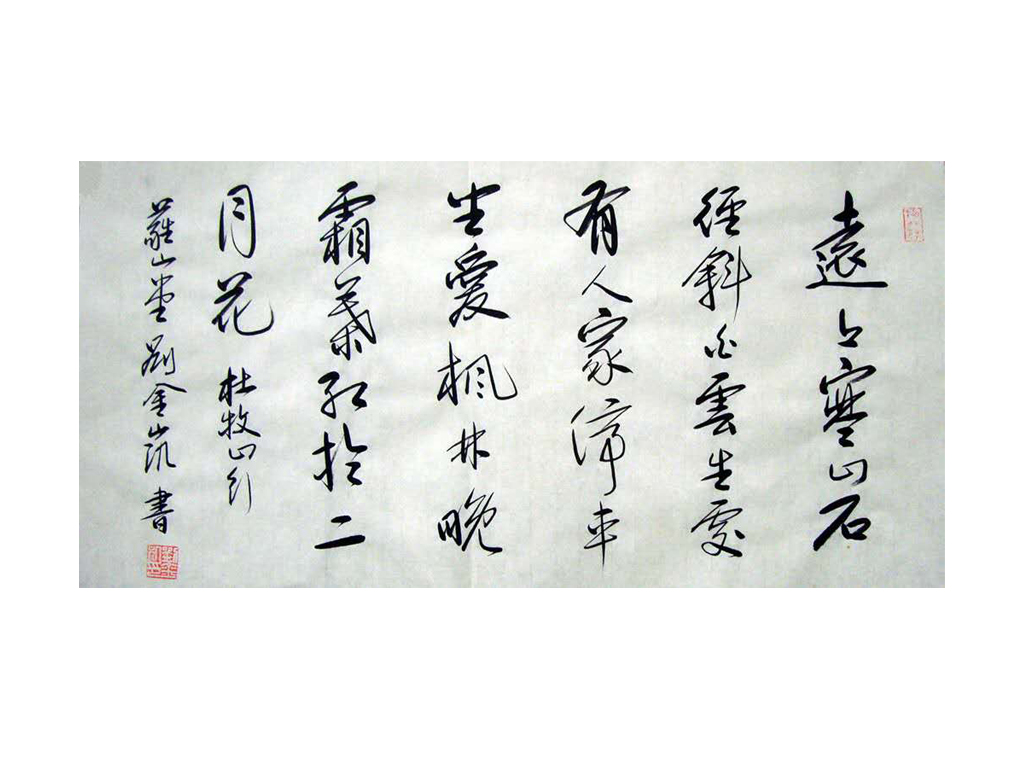 遠上寒山石
徑斜白雲生處
有人家停車
坐愛楓林晚
霜葉紅於二
月花 杜牧山行
山堂 劉金凱 書